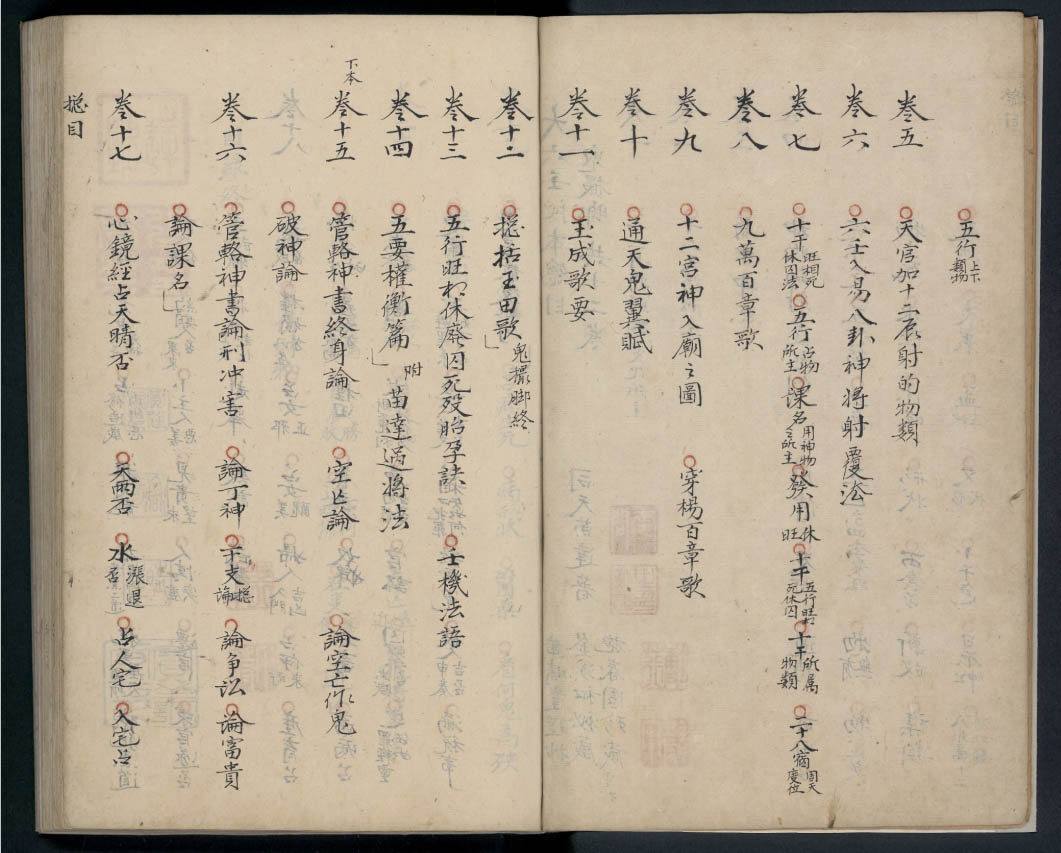 五行上下類物
卷五 天官加十二辰射的物類
卷六 六壬入易八卦神將射覆法
卷七 十干旺相死休囚法 五行占物所主 課名用神物之所主 發用休旺 十干五行旺死休囚 十干所属物類 二十八宿周天度位
卷八 九萬百章歌
卷九 十二宮神入廟之圖 穿楊百章歌
卷十 通天鬼翼賦
卷十一 玉成歌要
卷十二 捴括玉田歌 鬼撮脚終
卷十三 五行旺相休廢囚死歿胎孕誌 壬機法語
卷十四 五要權衡篇 附 苗達過將法
下本
卷十五 管輅神書終身論 空亡論 論空亡作鬼
破神論
卷十六 管輅神書論刑冲害 論丁神 干支捴論 論争訟 論富貴
論課名
卷十七 心鏡經占天晴否 天雨否 水漲退否 占人宅 入宅吉
捴目